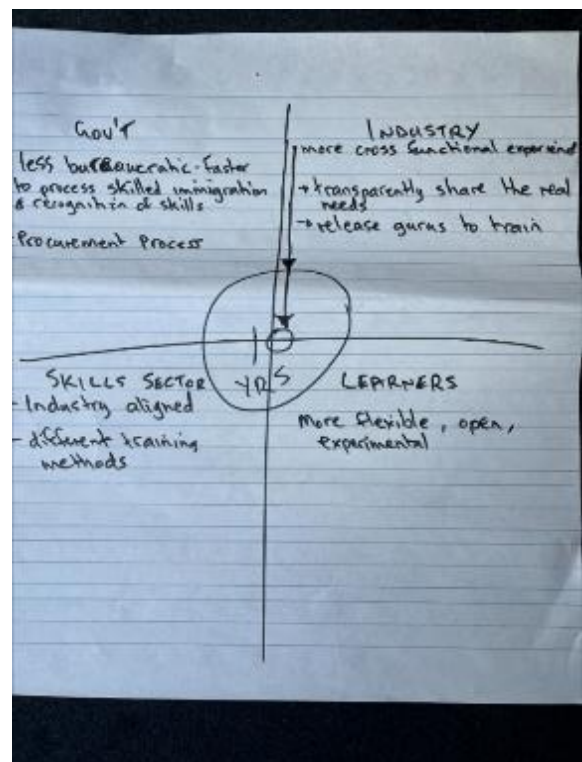 Gov'T
less bureaucratic - faster
to process skilled immigration
& recognition of skills
- Procurement Process
INDUSTRY
more cross functional
→ transparently share the real
needs
→ release gurus to train
10 YRS
SKILLS SECTOR
- Industry aligned
- different training
methods
LEARNERS
More flexible, open,
experimental